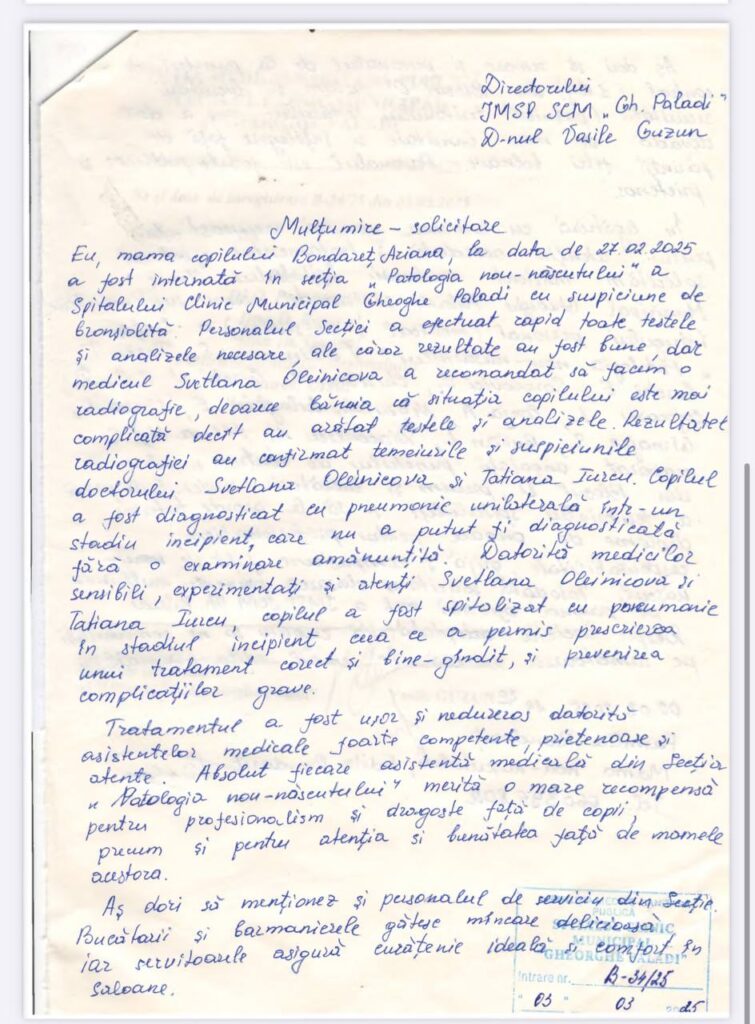 Directorului
IMSP SCM „Gh. Paladi"
D-nul Vasile Guzun
Mulțumire – solicitare
Eu, mama copilului Bondareț Ariana, la data de 27.02.2025
a fost internată în secția „Patologia nou-născutului" a
Spitalului Clinic Municipal Gheoghe Paladi cu suspiciune de
bronșiolită. Personalul Secției a efectuat rapid toate testele
și analizele necesare, ale căror rezultate au fost bune, dar
medicul Svetlana Oleinicova a recomandat să facem o
radiografie, deoarece bănuia că situația copilului este mai
complicată decît au arătat testele și analizele. Rezultatel
radiografiei au confirmat temeiurile și suspiciunile
doctorului Svetlana Oleinicova și Tatiana Iurcu. Copilul
a fost diagnosticat cu pneumonie unilaterală într-un
stadiu incipient, care nu a putut fi diagnosticată
fără o examinare amănunțită. Datorită medicilor
sensibili, experimentați și atenți Svetlana Oleinicova și
Tatiana Iurcu, copilul a fost spitalizat cu pneumonie
în stadiul incipient ceea ce a permis prescrierea
unui tratament corect și bine-gîndit, și prevenirea
complicațiilor grave.
Tratamentul a fost ușor și nedureros datorită
asistentelor medicale foarte competente, prietenoase și
atente. Absolut fiecare asistentă medicală din Secția
„Patologia nou-născutului" merită o mare recompensă
pentru profesionalism și dragoste față de copii,
precum și pentru atenția si bunătatea față de mamele
acestora.
Aș dori să menționez și personalul de serviciu din Secție.
Bucătarii și barmanierele gătesc mîncare delicioasă
iar servitoarele asigură curățenie ideală și comfort în
saloane.
PUBLICĂ
SPITALUL CLINIC
MUNICIPAL
"GHEORGHE PALADI"
Intrare nr. B-34/25
"03" 03 2025